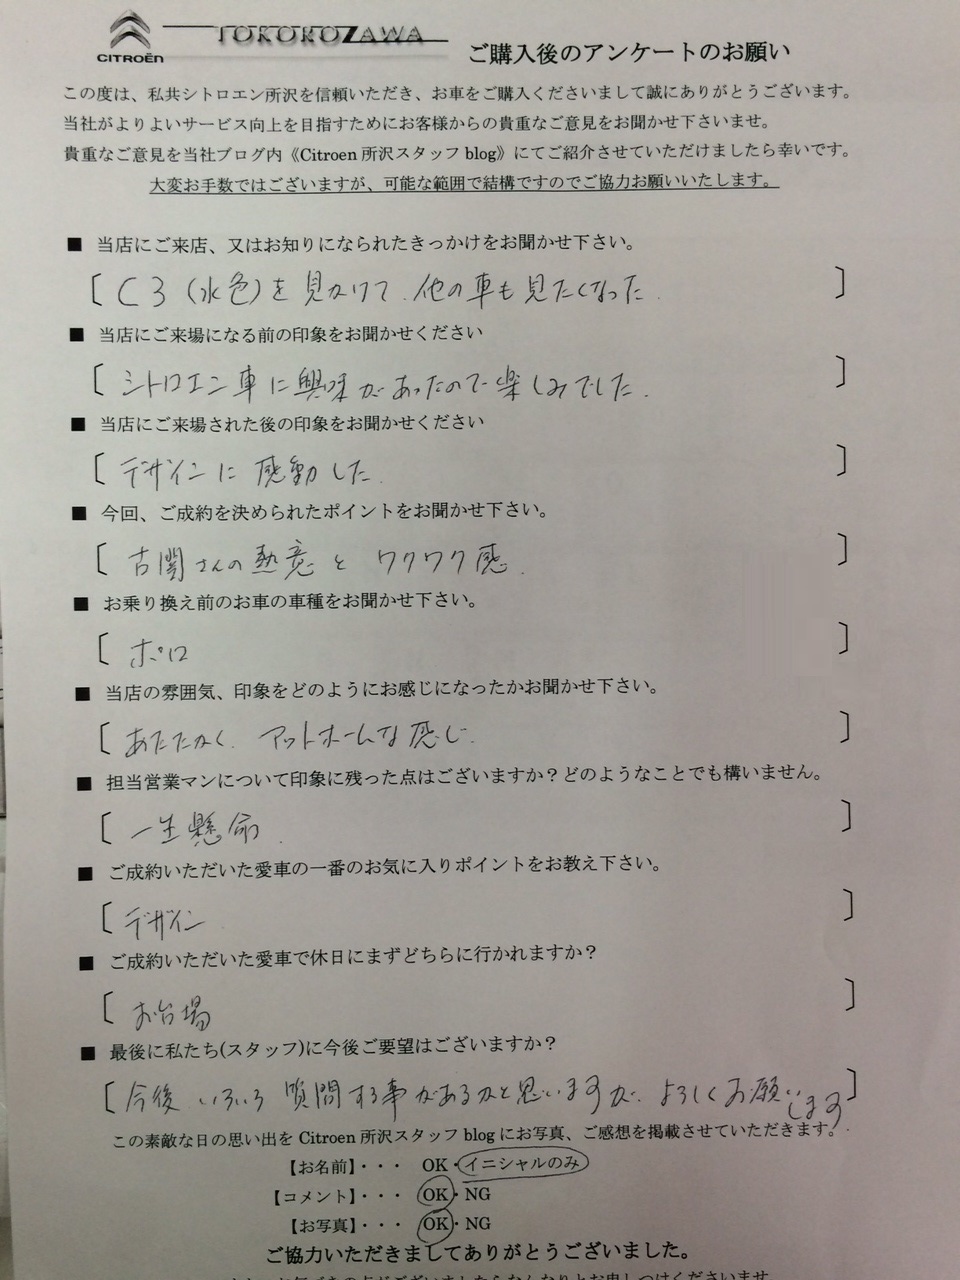 CITROËN
TOKOROZAWA
ご購入後のアンケートのお願い
この度は、私共シトロエン所沢を信頼いただき、お車をご購入くださいまして誠にありがとうございます。
当社がよりよいサービス向上を目指すためにお客様からの貴重なご意見をお聞かせ下さいませ。
貴重なご意見を当社ブログ内《Citroen 所沢スタッフ blog》にてご紹介させていただけましたら幸いです。
大変お手数ではございますが、可能な範囲で結構ですのでご協力お願いいたします。
■ 当店にご来店、又はお知りになられたきっかけをお聞かせ下さい。
[ C3 (水色)を見かけて、他の車も見たくなった. ]
■ 当店にご来場になる前の印象をお聞かせください
[ シトロエン車に興味があったので楽しみでした. ]
■ 当店にご来場された後の印象をお聞かせください
[ デザインに感動した. ]
■ 今回、ご成約を決められたポイントをお聞かせ下さい。
[ 古関さんの熱意とワクワク感. ]
■ お乗り換え前のお車の車種をお聞かせ下さい。
[ ポロ ]
■ 当店の雰囲気、印象をどのようにお感じになったかお聞かせ下さい。
[ あたたかく、アットホームな感じ. ]
■ 担当営業マンについて印象に残った点はございますか？どのようなことでも構いません。
[ 一生懸命. ]
■ ご成約いただいた愛車の一番のお気に入りポイントをお教え下さい。
[ デザイン ]
■ ご成約いただいた愛車で休日にまずどちらに行かれますか？
[ お台場 ]
■ 最後に私たち(スタッフ)に今後ご要望はございますか？
[ 今後いろいろ質問する事があるかと思いますが、よろしくお願いします ]
この素敵な日の思い出を Citroen 所沢スタッフ blog にお写真、ご感想を掲載させていただきます。
【お名前】・・・ OK・イニシャルのみ
【コメント】・・・ OK・NG
【お写真】・・・ OK・NG
ご協力いただきましてありがとうございました。